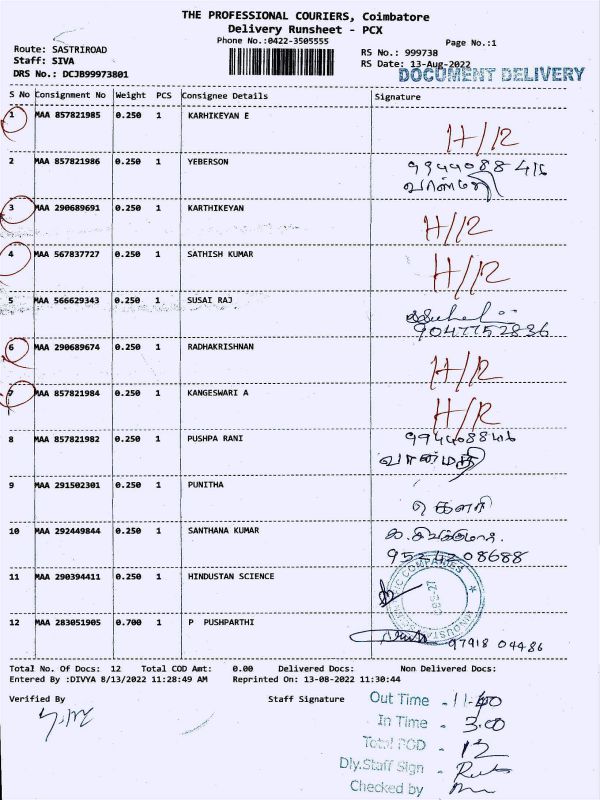 THE PROFESSIONAL COURIERS, Coimbatore
Delivery Runsheet - PCX
Phone No.:0422-3505555
Page No.:1
Route: SASTRIROAD
RS No.: 999738
Staff: SIVA
RS Date: 13-Aug-2022
DRS No.: DCJB99973801
DOCUMENT DELIVERY
S No Consignment No Weight PCS Consignee Details Signature
1 MAA 857821985 0.250 1 KARHIKEYAN E H/R
2 MAA 857821986 0.250 1 YEBERSON 9944088 416
வான்மதி
3 MAA 290689691 0.250 1 KARTHIKEYAN H/R
4 MAA 567837727 0.250 1 SATHISH KUMAR H/R
5 MAA 566629343 0.250 1 SUSAI RAJ
9047752886
6 MAA 290689674 0.250 1 RADHAKRISHNAN H/R
7 MAA 857821984 0.250 1 KANGESWARI A H/R
8 MAA 857821982 0.250 1 PUSHPA RANI 9944088416
வான்மதி
9 MAA 291502301 0.250 1 PUNITHA கௌரி
10 MAA 292449844 0.250 1 SANTHANA KUMAR
9524208688
11 MAA 290394411 0.250 1 HINDUSTAN SCIENCE
12 MAA 283051905 0.700 1 P PUSHPARTHI 97918 04486
Total No. Of Docs: 12 Total COD Amt: 0.00 Delivered Docs: Non Delivered Docs:
Entered By :DIVYA 8/13/2022 11:28:49 AM Reprinted On: 13-08-2022 11:30:44
Verified By Staff Signature
Out Time - 11-40
In Time - 3.00
Total POD - 12
Dly.Staff Sign -
Checked by